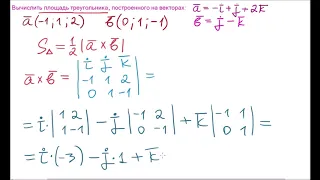 Вычислить площадь треугольника, построенного на векторах
a̅ = -i̅ + j̅ + 2k̅
b̅ = j̅ - k̅
a̅(-1; 1; 2)   b̅(0; 1; -1)
S△ = 1/2 |a̅ × b̅|
a̅ × b̅ = | i̅ j̅ k̅ |
| -1 1 2 |
| 0 1 -1 | =
= i̅ · | 1 2 | - j̅ | -1 2 | + k̅ | -1 1 | =
| 1 -1 | | 0 -1 | | 0 1 |
= i̅ · (-3) - j̅ · 1 + k̅